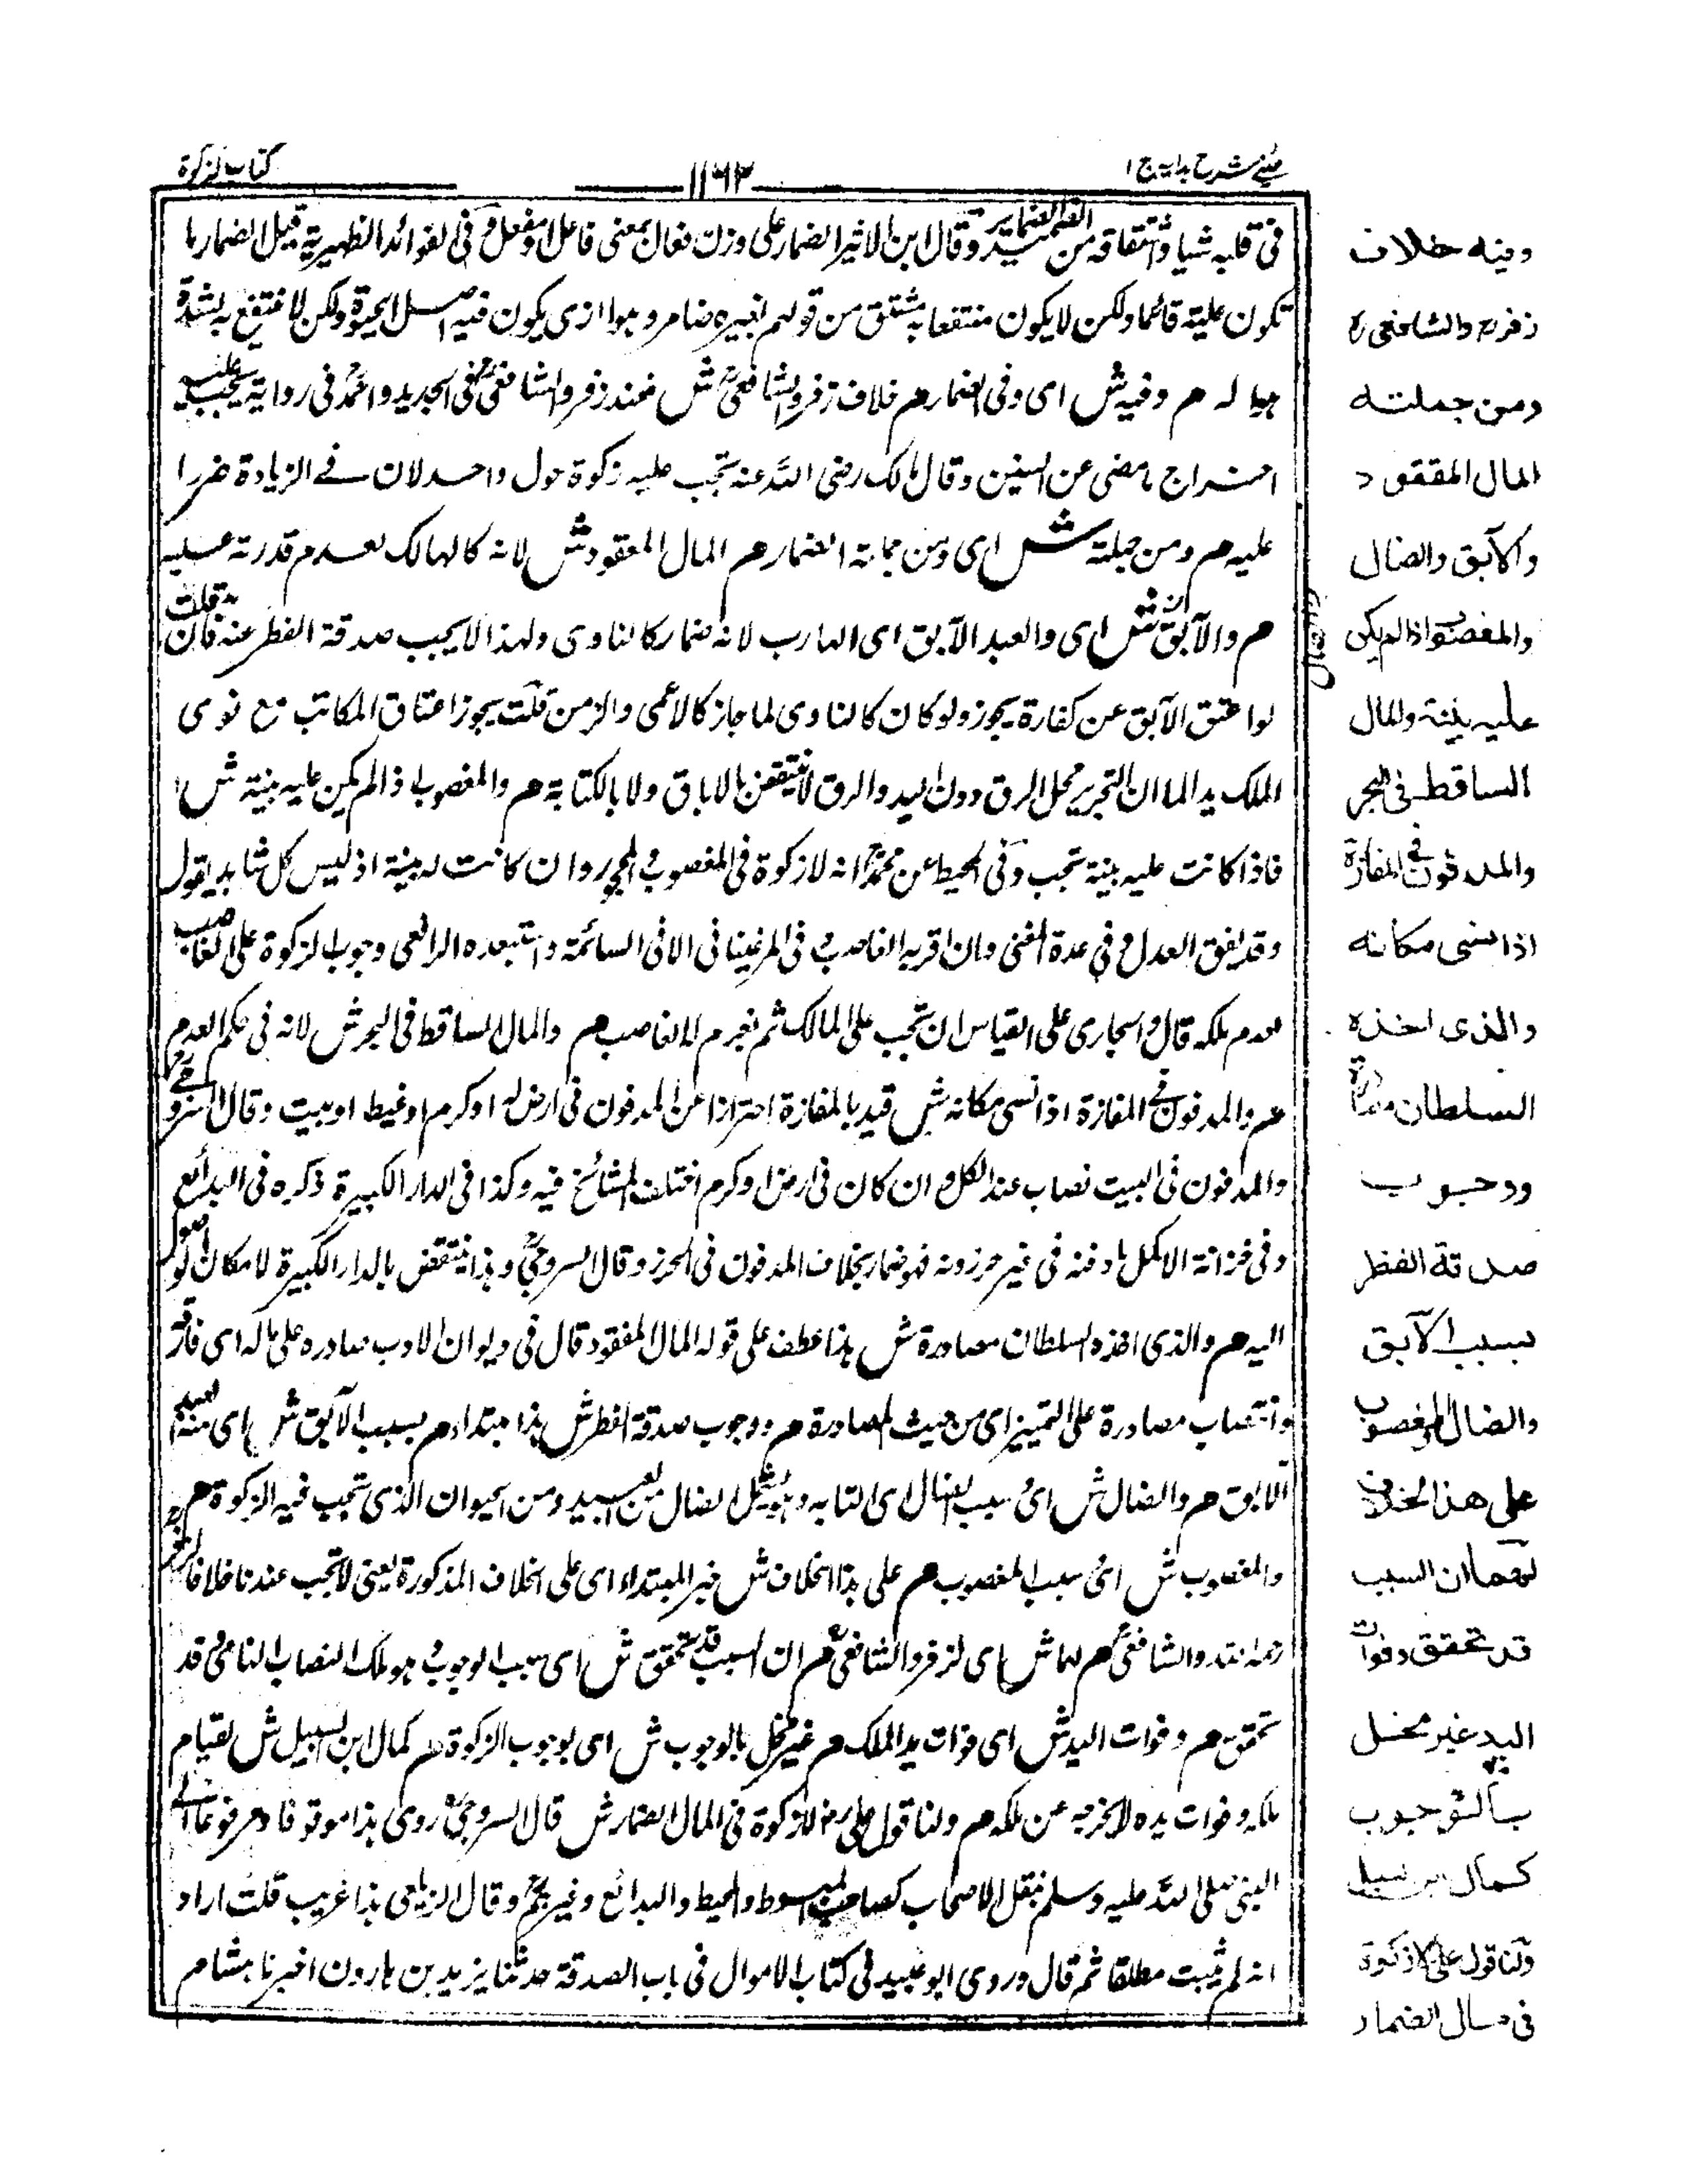 عینی شرح ہدایہ ج ۱
۱۱۶۲
کتاب الزکوة
فی قلبه شیا واشتقاقه من وقال ابن الاثیر الضمار علی وزن فعال بمعنی فاعل او مفعل وفی الفوائد الظهیریة قیل الضمار ما
تکون علیه قائما ولکن لا یکون منتفعا به مشتق من قولهم لبعیر ضامر وهو الذی یکون فیه اصل الحیوة ولکن لا ینتفع به لشدة
هزاله م وفیه ش ای وفی الضمار م خلاف زفر والشافعی ش فعند زفر والشافعی فی الجدید واحمد فی روایة یجب علیه
اخراج ما مضی عن السنین وقال مالک رضی الله عنه تجب علیه زکوة حول واحد لان فی الزیادة ضررا
علیه م ومن جملته ش ای ومن جملة الضمار م المال المفقود ش لانه کالهالک لعدم قدرته علیه
م والآبق ش ای والعبد الآبق ای الهارب لانه ضمار کالتاوی ولهذا لا یجب صدقة الفطر عنه فان قلت
لو اعتق الآبق عن کفارة یجوز ولو کان کالتاوی لما جاز کالاعمی والزمن قلت یجوز اعتاق المکاتب مع توی
الملک یدا لما ان التحریر محل الرق دون الید والرق لا ینتقض بالاباق ولا بالکتابة م والمغصوب اذا لم یکن علیه بینة ش
فاذا کانت علیه بینة تجب وفی المحیط عن محمد انه لا زکوة فی المغصوب والمجحود وان کانت له بینة اذ لیس کل شاهد یقبل
وقد یفق العدل وفی عدة المفتی وان اقر به الغاصب وفی المرغینانی الا فی السائمة واستبعده الرافعی وجوب الزکوة علی الغاصب
لعدم ملکه قال والجاری علی القیاس ان تجب علی المالک ثم یغرم له الغاصب م والمال الساقط فی البحر ش لانه فی حکم العدم
م والمدفون فی المفازة اذا نسی مکانه ش قید بالمفازة احترازا عن المدفون فی ارض له او کرم او غیط او بیت وقال السروجی
والمدفون فی البیت نصاب عند الکل وان کان فی ارض او کرم اختلف المشائخ فیه وکذا فی الدار الکبیرة ذکره فی البدائع
وفی خزانة الاکمل ما دفنه فی غیر حرزونه فهو ضمار بخلاف المدفون فی الحرز وقال السروجی وهذا ینتقض بالدار الکبیرة لامکان الوصول
الیه م والذی اخذه السلطان مصادرة ش هذا عطف علی قوله المال المفقود قال فی دیوان الادب صادره علی ماله ای فارقه
وانتصاب مصادرة علی التمییز ای من حیث المصادرة م ووجوب صدقة الفطر ش هذا مبتدا م بسبب الآبق ش ای
الآبق م والضال ش ای بسبب الضال ای التایه وهو یشمل الضال من العبید ومن الحیوان الذی تجب فیه الزکوة م
والمغصوب ش ای بسبب المغصوب م علی هذا الخلاف ش خبر المبتدا ای علی الخلاف المذکورة یعنی لا تجب عندنا خلافا لزفر
رحمه الله والشافعی م لهما ش ای لزفر والشافعی م ان السبب قد تحقق ش ای سبب الوجوب وهو ملک النصاب النامی قد
تحقق م وفوات الید ش ای فوات ید الملک م غیر مخل بالوجوب ش ای بوجوب الزکوة م کمال ابن السبیل ش لقیام
ملکه وفوات یده لا یخرجه عن ملکه م ولنا قول علی لا زکوة فی المال الضمار ش قال السروجی روی هذا موقوفا ومرفوعا الی
النبی صلی الله علیه وسلم بنقل الاصحاب کصاحب المبسوط والمحیط والبدائع وغیرهم وقال الزیلعی هذا غریب قلت اراد
انه لم یثبت مطلقا ثم قال وروی ابو عبید فی کتاب الاموال فی باب الصدقة حدثنا یزید بن هارون اخبرنا هشام
وفیه خلاف
زفر والشافعی
ومن جملته
المال المفقود
والآبق والضال
والمغصوب اذا لم یکن
علیه بینة والمال
الساقط فی البحر
والمدفون فی المفازة
اذا نسی مکانه
والذی اخذه
السلطان مصادرة
ووجوب
صدقة الفطر
بسبب الآبق
والضال والمغصوب
علی هذا الخلاف
لهما ان السبب
قد تحقق وفوات
الید غیر مخل
بالوجوب
کمال ابن السبیل
ولنا قول علی لا زکوة
فی مال الضمار